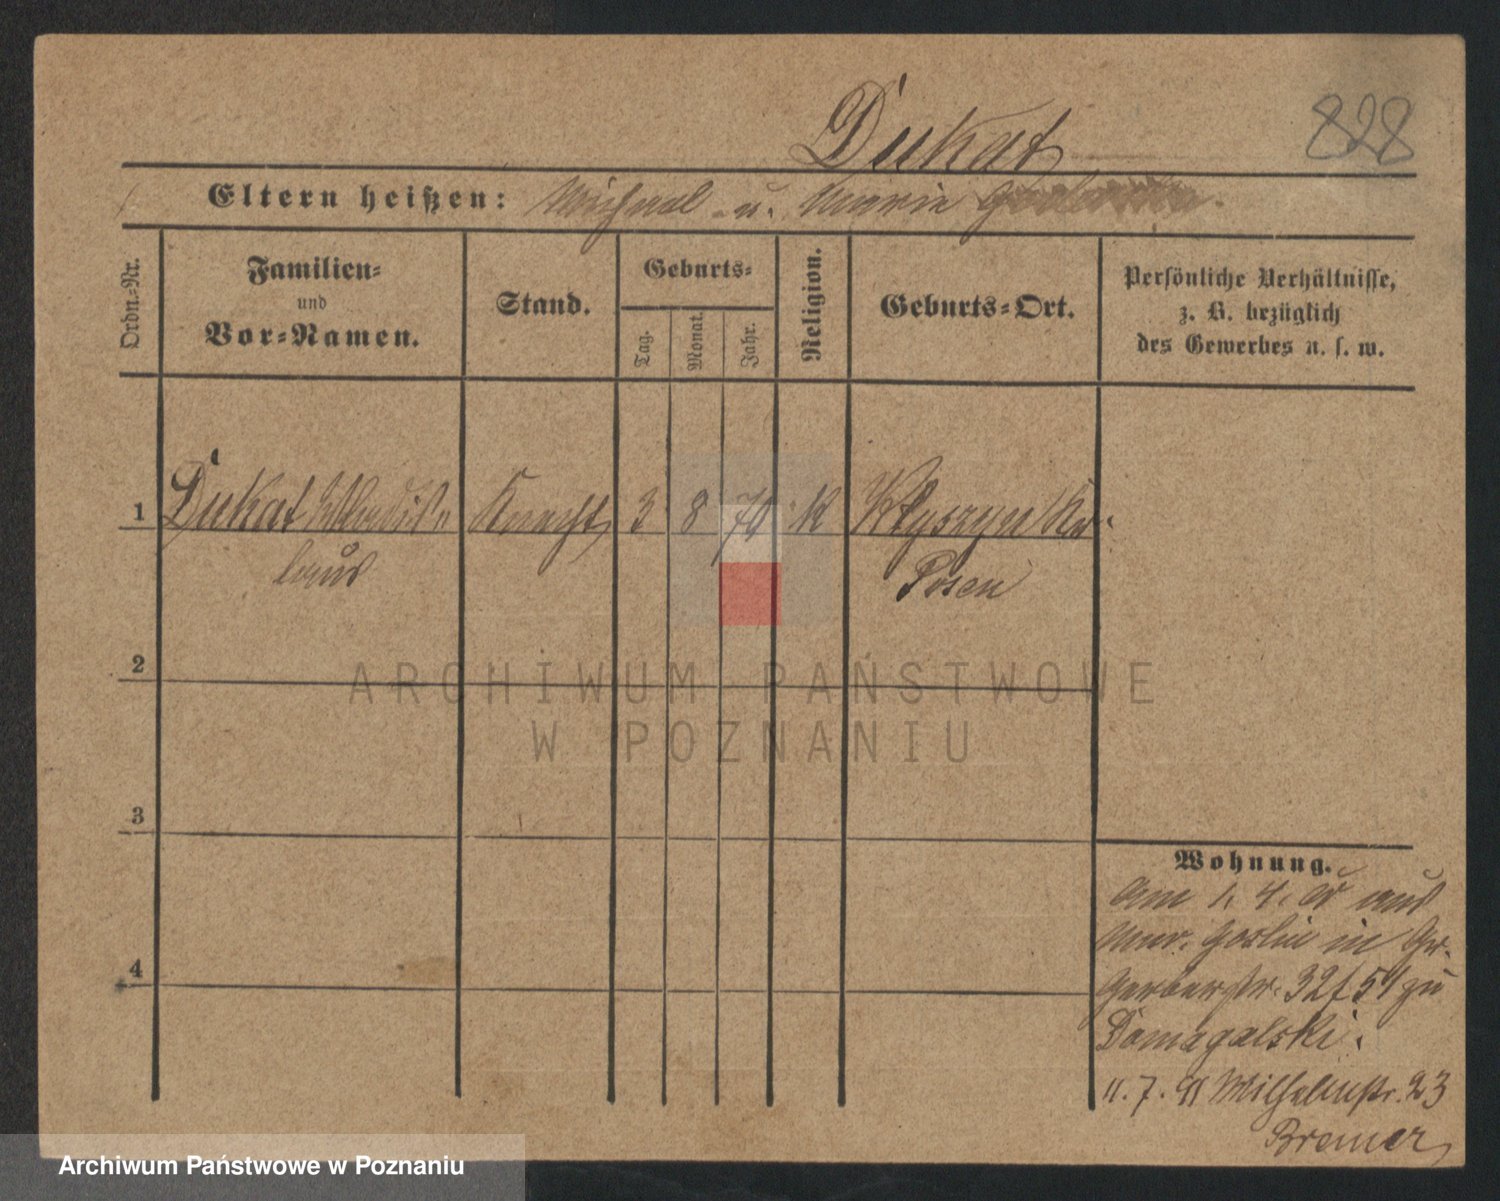 Dukat
828
Eltern heißen: Michael u. Marie
Ordn.-Nr.
Familien-
und
Vor-Namen.
Stand.
Geburts-
Tag.
Monat.
Jahr.
Religion.
Geburts-Ort.
Persönliche Verhältnisse,
z. B. bezüglich
des Gewerbes u. s. w.
1 Dukat Knecht 3 8 70 k Kr.
laus
Posen
2
3
4
Wohnung.
Am 1. 4. cr aus
Mur. Goslin in Gr.
Gerberstr. 32 f 54 zu
Domagalski.
11. 7. 91 Wilhelmstr. 23
Bremer
ARCHIWUM PAŃSTWOWE
W POZNANIU
Archiwum Państwowe w Poznaniu